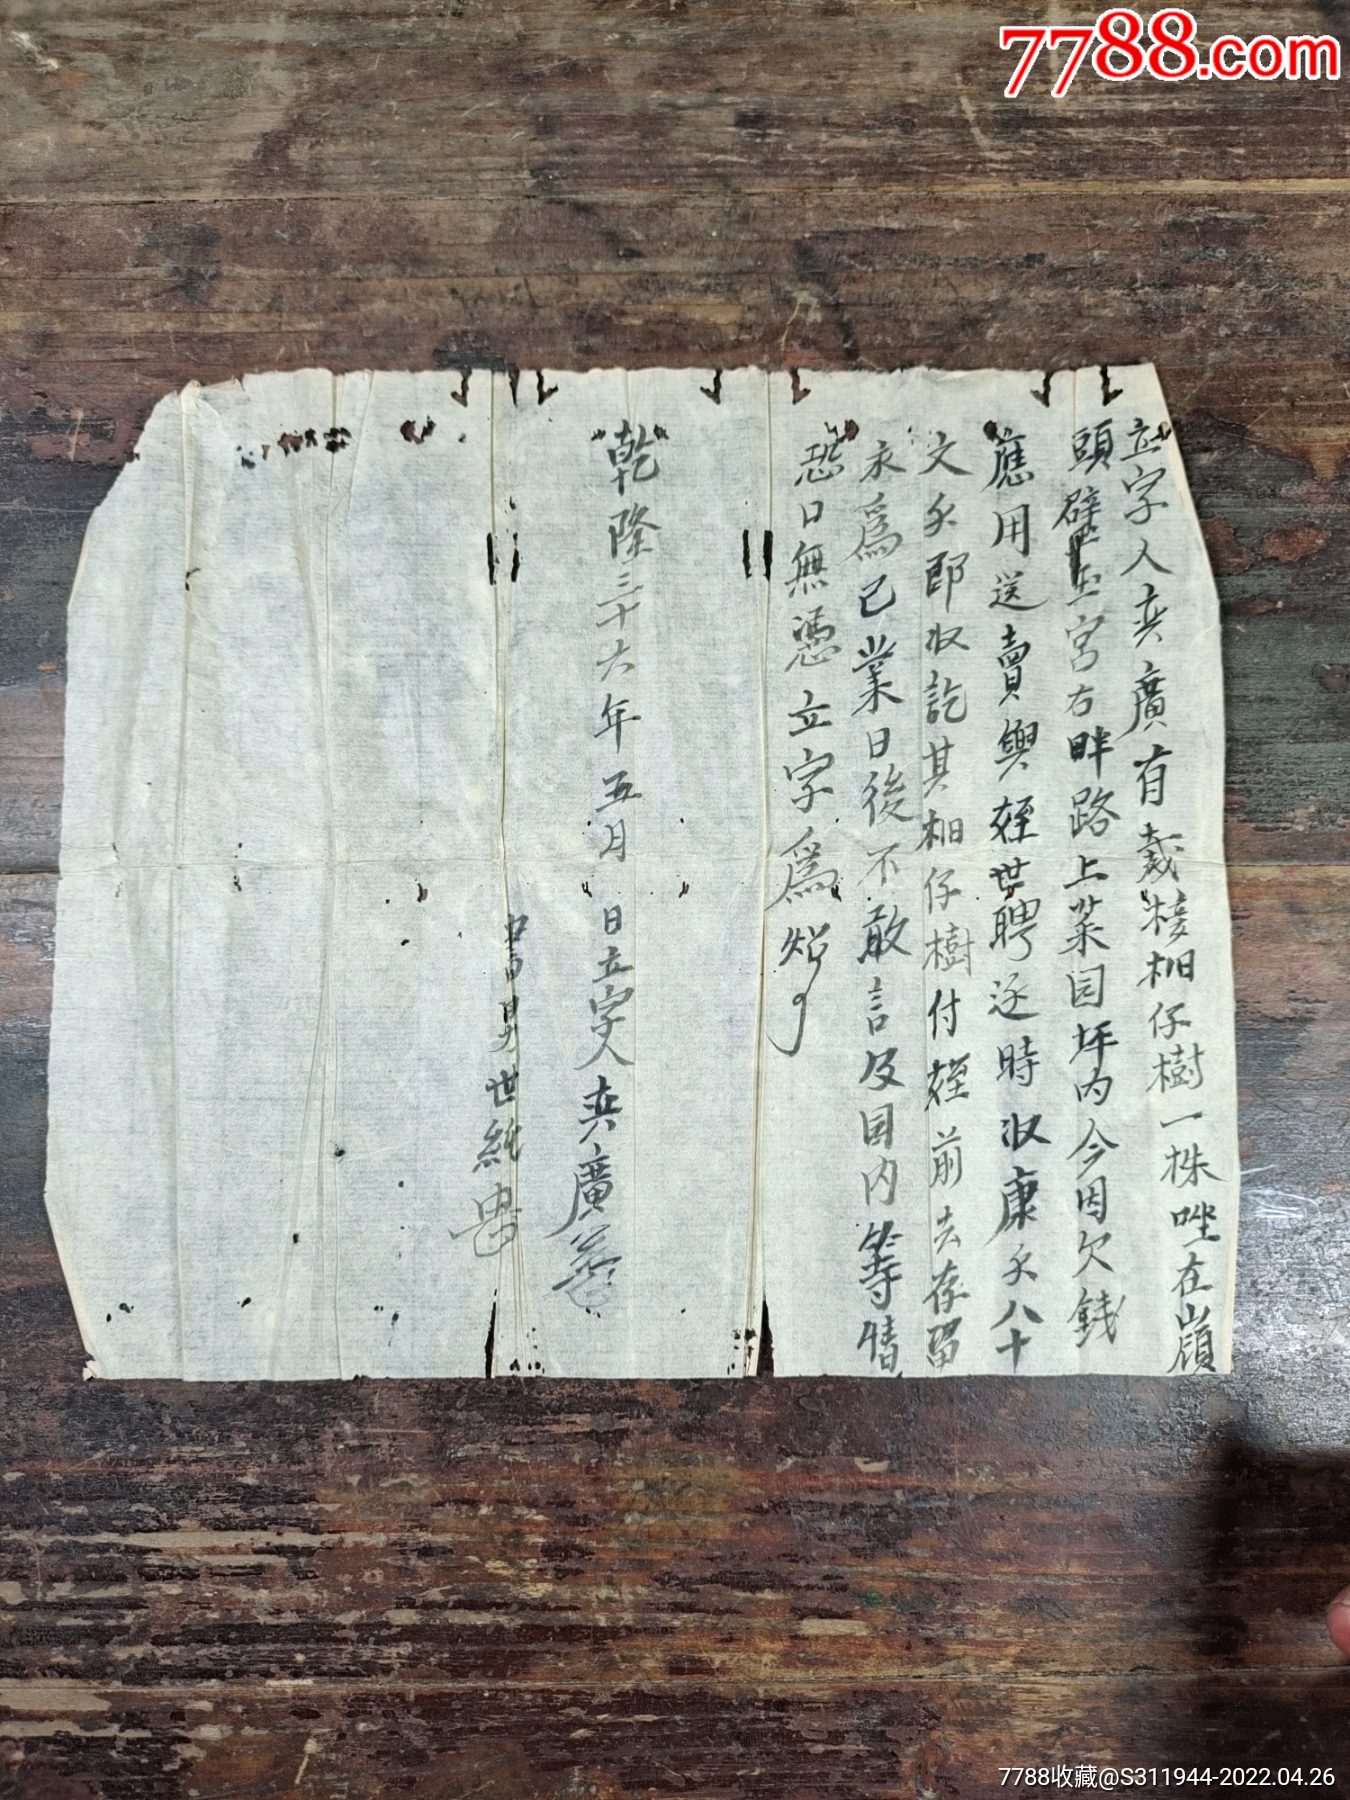 7788.com
立字人奕廣有栽接柏仔樹一株坐在嶺
頭壁玉宮右畔路上菜园坪内今因欠錢
應用送賣與姪世聘逐時收康錢八十
文錢即收訖其柏仔樹付姪前去存留
永為己業日後不敢言及园内等情
恐口無憑立字為照
乾隆三十六年五月日立字人奕廣
世純
7788收藏@S311944-2022.04.26